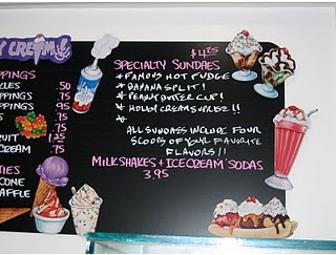 Y CREAM!!
$4.25
SPECIALTY SUNDAES
PPINGS
* FAMOUS HOT FUDGE
KLES .50
* BANANA SPLIT!
PPINGS .75
* PEANUT BUTTER CUP!
PPINGS .95
* HOLLY CREAM SUPREZ!!
S .75
*
.75
ALL SUNDAES INCLUDE FOUR
RUIT 1.25
SCOOPS OF YOUR FAVORITE
CREAM .75
FLAVORS!!
MILKSHAKES + ICE CREAM SODAS
TIES
3.95
CONE
AFFLE